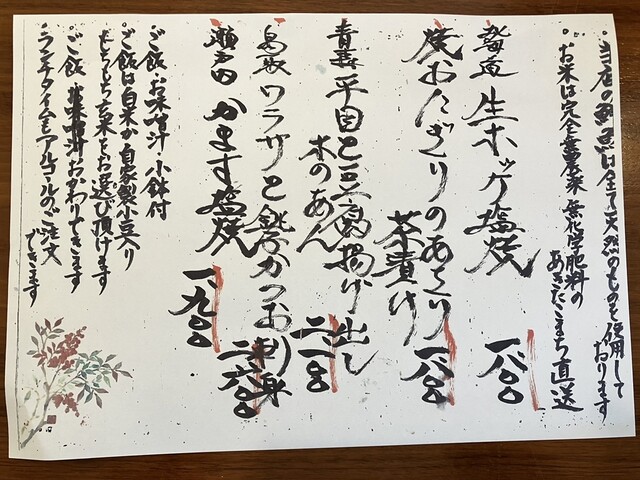 ・当店の鮮魚は全て天然のものを使用して
おります
・お米は完全無農薬 無化学肥料の
あきたこまち直送
北海道 生ホッケ塩焼 一八〇〇
焼おにぎりのあさり
茶漬け 一八〇〇
青森 平目と豆腐揚げ出し
木のあん 二一〇〇
鳥取 ワラサと銚子かつお刺身 二六〇〇
瀬戸内 かます塩焼 一九〇〇
ご飯・お味噌汁・小鉢付
ご飯は白米か自家製小豆入り
もちもち玄米をお選び頂けます
・ご飯 お味噌汁おかわりできます
・ランチタイムもアルコールのご注文
できます